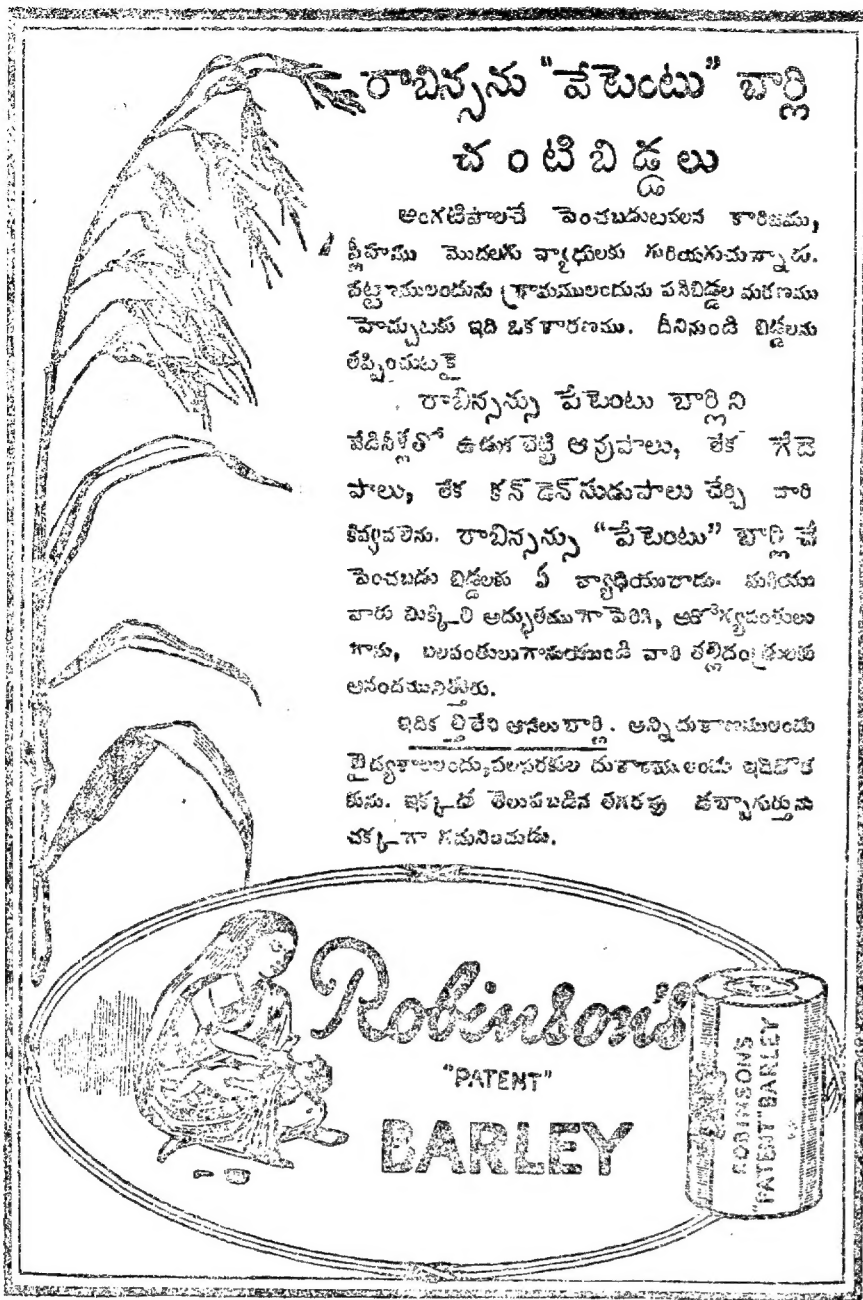 రాబిన్సను "పేటెంటు" బార్లి
చంటిబిడ్డలు
అంగటిపాలచే పెంచబడుటవలన కారిజము,
ప్లీహము మొదలగు వ్యాధులకు గురియగుచున్నారు.
పట్టణములందును గ్రామములందును పసిబిడ్డల మరణము
హెచ్చుటకు ఇది ఒకకారణము. దీనినుండి బిడ్డలను
తప్పించుటకై
రాబిన్సన్సు పేటెంటు బార్లిని
వేడినీళ్లతో ఉడుకబెట్టి ఆవుపాలు, లేక గేదె
పాలు, లేక కన్‌డెన్‌సుడుపాలు చేర్చి వారి
కివ్వవలెను. రాబిన్సన్సు "పేటెంటు" బార్లిచే
పెంచబడు బిడ్డలకు ఏ వ్యాధియురాదు. మరియు
వారు మిక్కిలి అద్భుతముగా పెరిగి, ఆరోగ్యవంతులు
గాను, బలవంతులుగానుయుండి వారి తల్లిదండ్రులకు
ఆనందమునిత్తురు.
ఇదికల్తిలేని అసలుబార్లి. అన్నిదుకాణములందు
వైద్యశాలలందు, పలసరకుల దుకాణములందు ఇదిదొర
కును. ఇక్కడ తెలుపబడిన తగరపు డబ్బాగుర్తును
చక్కగా గమనించుడు.
Robinson's
"PATENT"
BARLEY
ROBINSON'S
"PATENT" BARLEY